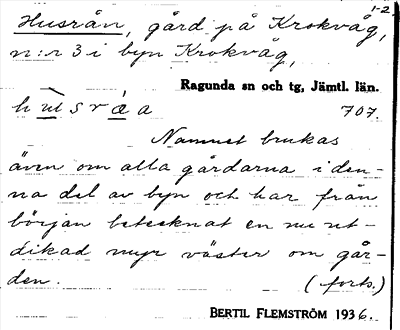 1-2
Husrån, gård på Krokvåg,
n:r 3 i byn Krokvåg,
Ragunda sn och tg, Jämtl. län.
707.
Namnet brukas
även om alla gårdarna i den-
na del av byn och har från
början betecknat en nu ut-
dikad myr väster om går-
den. (forts.)
BERTIL FLEMSTRÖM 1936.